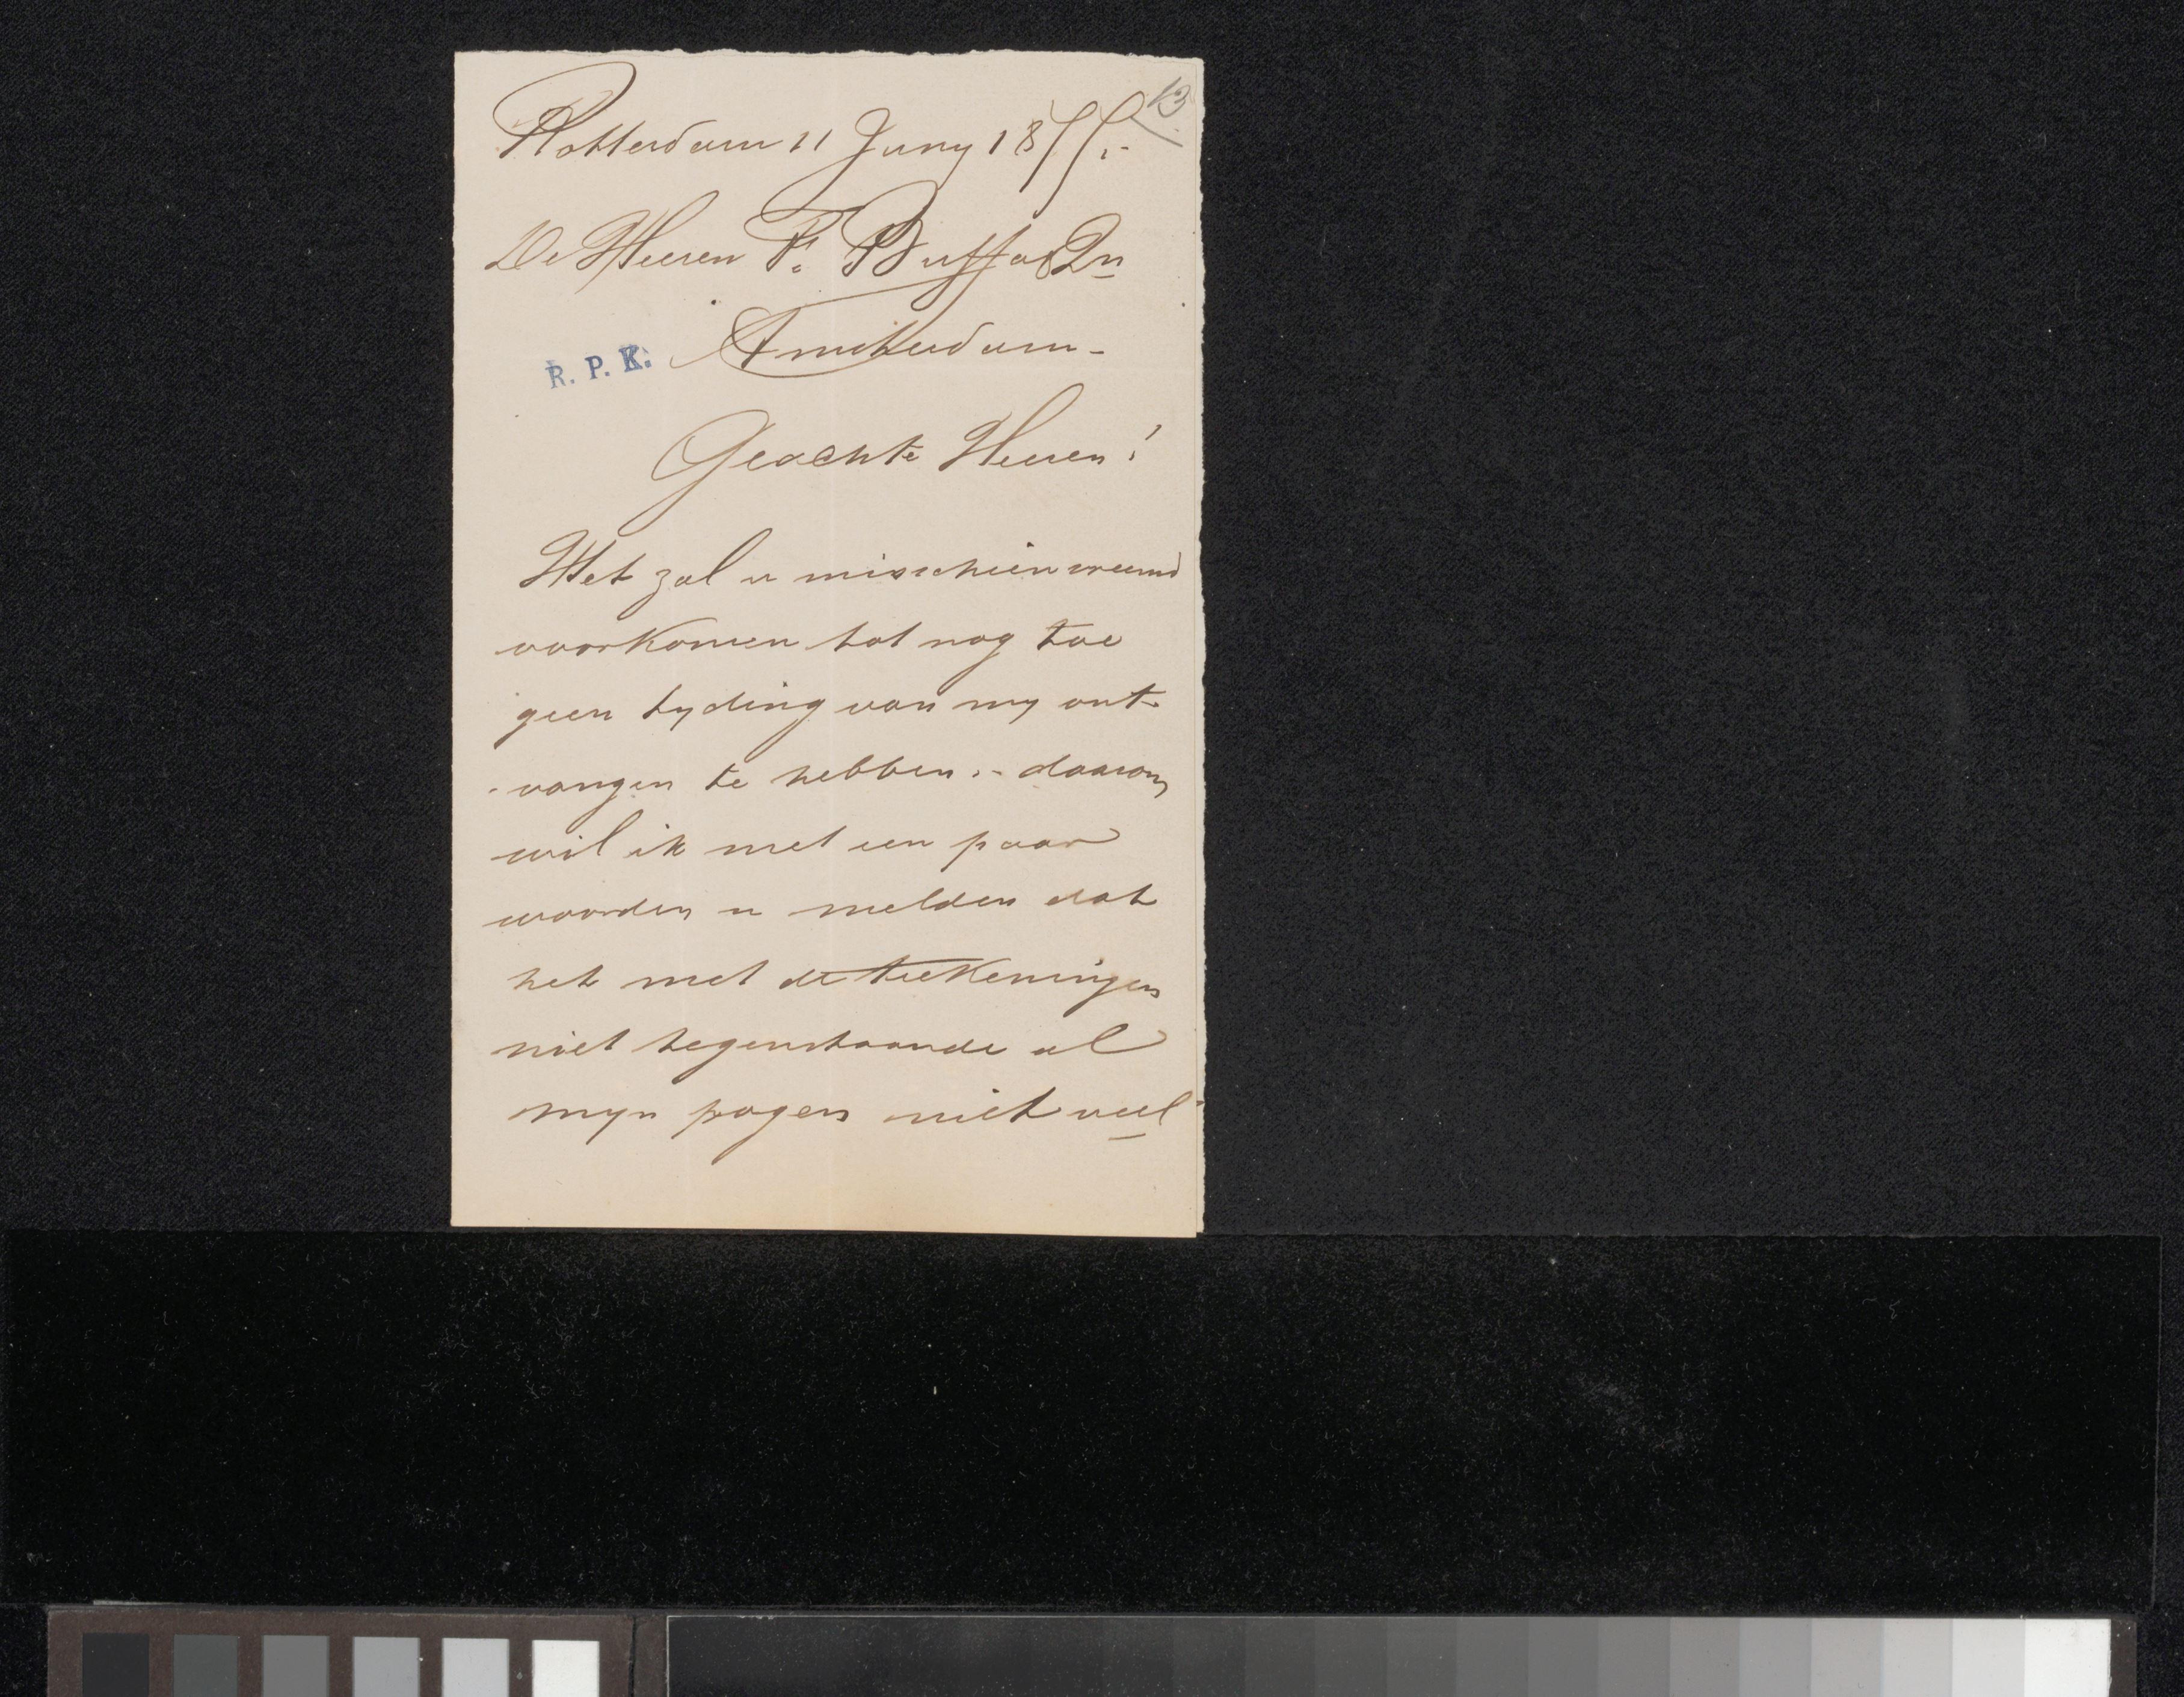 13
Rotterdam 11 Juny 1877.-
De Heeren F. Buffa & Zn
Amsterdam-
R. P. K.
Geachte Heeren!
Het zal u misschien vreemd
voorkomen tot nog toe
geen tyding van my ont-
-vangen te hebben.- daarom
wil ik met een paar
woorden u melden dat
het met de teekeningen
niet tegenstaande al
myn pogen niet veel